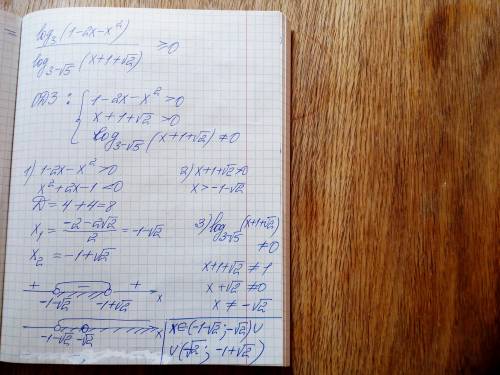 log₃(1-2x-x²) / log₃₋√5(x+1+√2) ≥0
ОДЗ: { 1-2x-x²>0
x+1+√2>0
log₃₋√5(x+1+√2)≠0
1) 1-2x-x²>0
x²+2x-1<0
D=4+4=8
x₁= (-2-2√2)/2 =-1-√2
x₂=-1+√2
2) x+1+√2>0
x>-1-√2
3) log₃₋√5(x+1+√2)
≠0
x+1+√2≠1
x+√2≠0
x≠-√2
+ - + x
-1-√2 -1+√2
x
-1-√2 -√2
x∈(-1-√2; -√2)∪
∪(-√2; -1+√2)